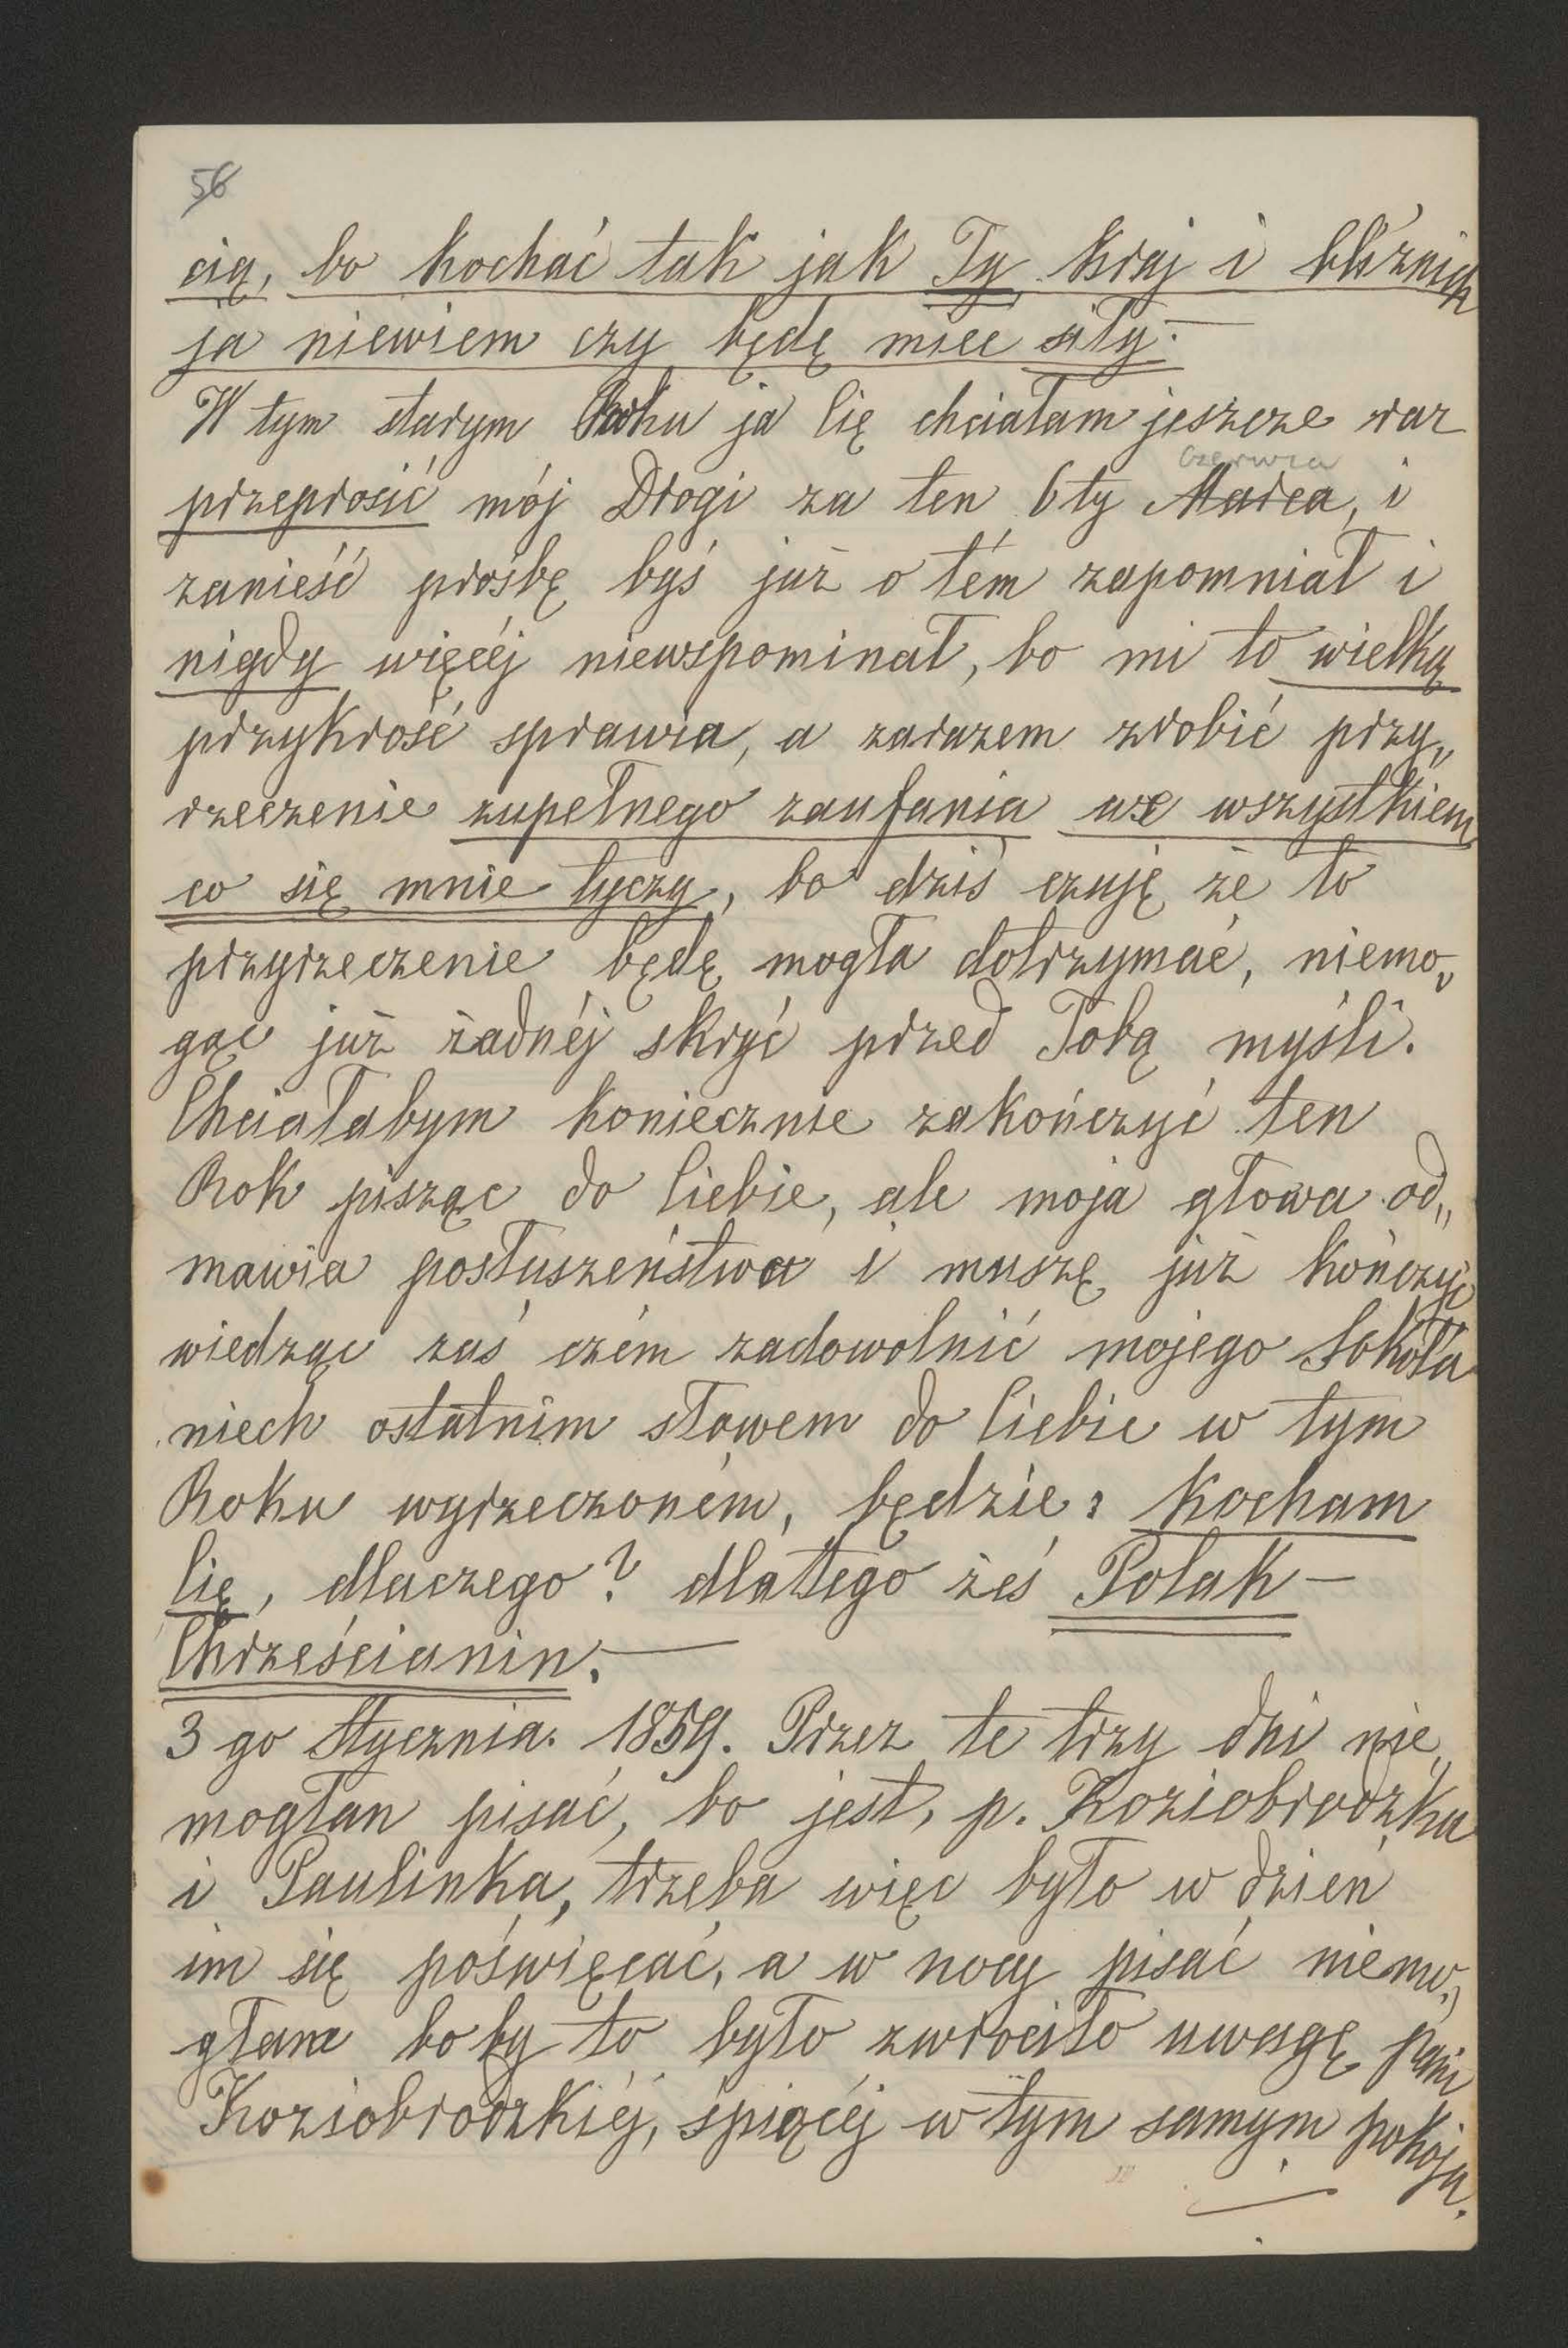 56
cią, bo kochać tak jak Ty kraj i bliźnich
ja niewiem czy będę miec siły.—
W tym starym Roku ja Cię chciałam jeszcze raz
czerwca
przeprosić mój Drogi za ten 6ty Marca, i
zanieść prośbę byś już o tém zapomniał i
nigdy więcéj niewspominał, bo mi to wielką
przykrość sprawia, a zarazem zrobić przy„
rzeczenie zupełnego zaufania we wszystkiem
co się mnie tyczy, bo dziś czuję że to
przyrzeczenie będę mogła dotrzymać, niemo„
gąc już żadnéj skryć przed Tobą myśli.
Chciałabym koniecznie zakończyć ten
Rok pisząc do Ciebie, ale moja głowa od„
mawia posłuszeństwa i muszę już kończyć
wiedząc zaś czém zadowolnić mojego Sokoła
niech ostatnim słowem do Ciebie w tym
Roku wyrzeczoném, będzie: Kocham
Cię, dlaczego? dlatego żeś Polak—
Chrześcianin.—
3 go Stycznia. 1859. Przez te trzy dni nie„
mogłan pisać, bo jest, p. Koziobrodzka
i Paulinka, trzeba więc było w dzień
im się poświęcać, a w nocy pisać niemo„
głam bo by to było zwrociło uwagę pani
Koziobrodzkiéj, śpiącéj w tym samym pokoju.